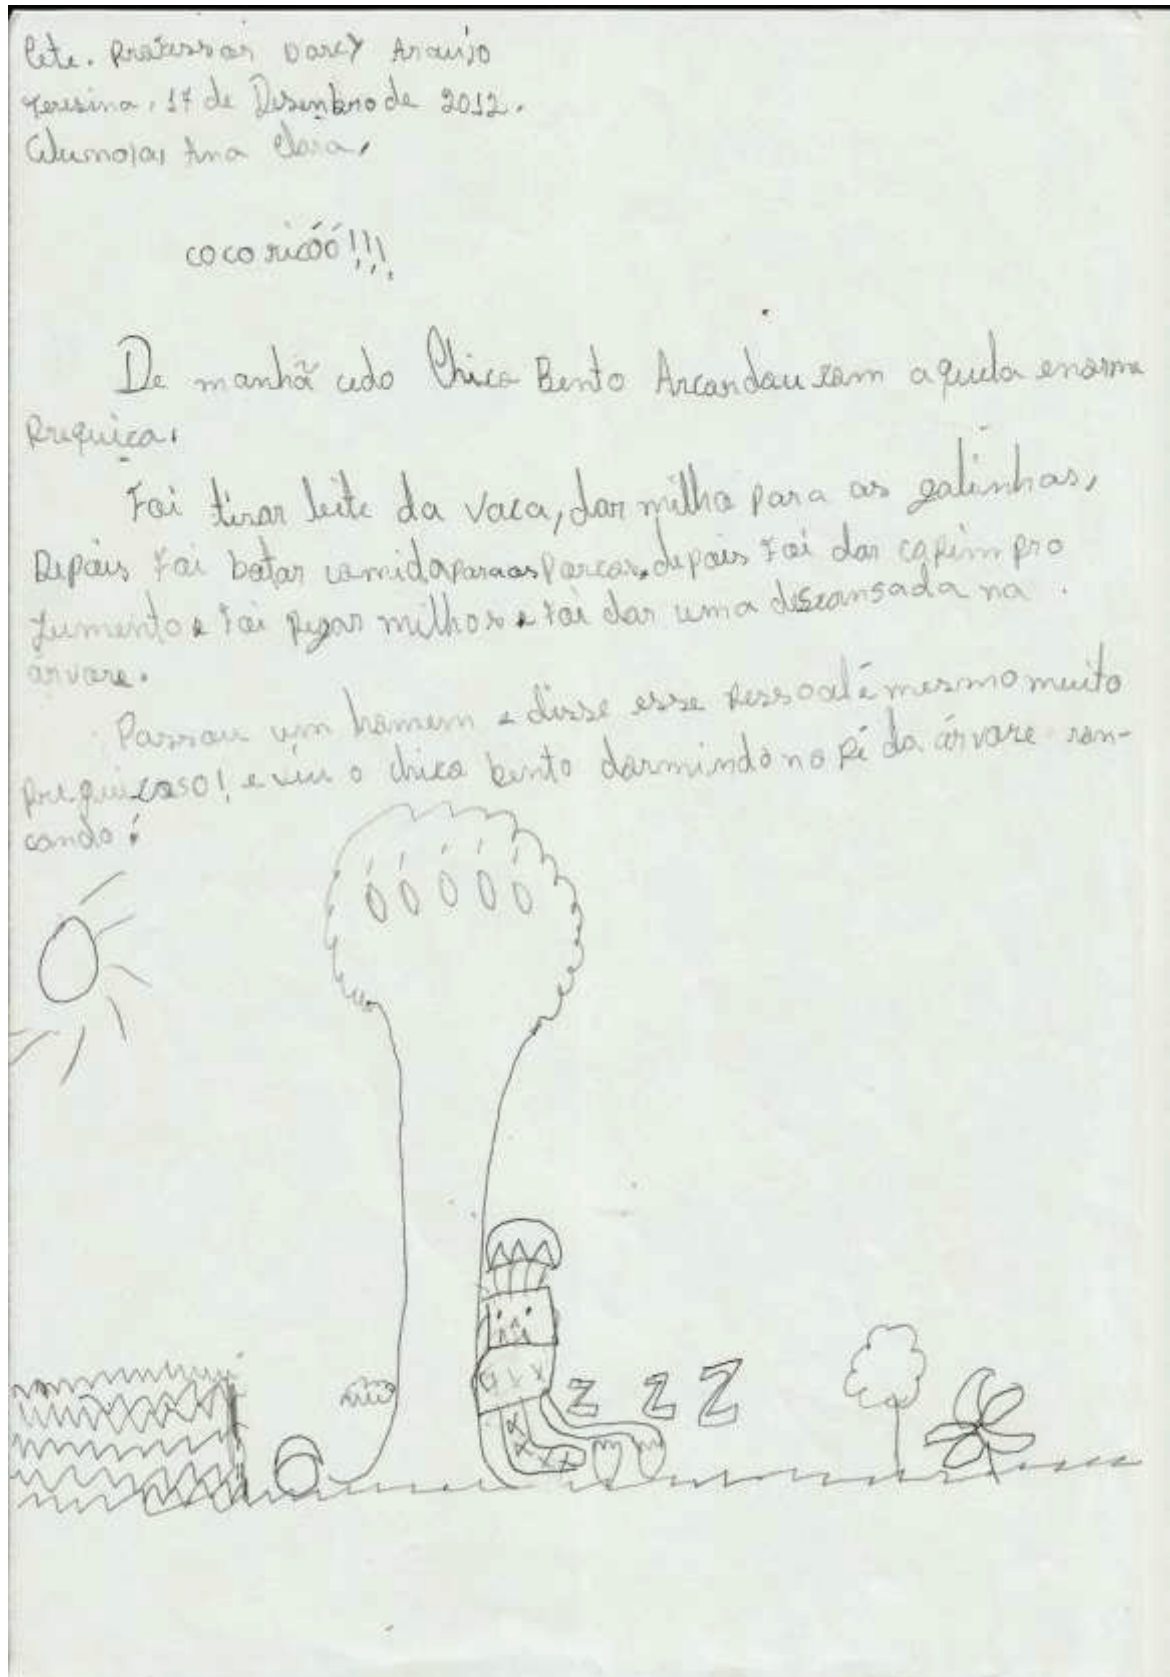 Cete. Professor Darcy Araujo
Teresina, 17 de Desembro de 2012.
Aluno(a) Ana Clara,
cocoricóó!!!
De manhã cedo Chico Bento Arcordou com aquela enorme
Preguiça.
Foi tirar leite da vaca, dar milho para as galinhas,
Depois foi botar comida para os porcos, depois foi dar capim pro
jumento e foi pegar milhos e foi dar uma descansada na
árvore.
Passou um homem e disse esse pessoal é mesmo muito
preguiçoso! e viu o chico bento dormindo no pé da árvore ron-
cando!
Z Z Z